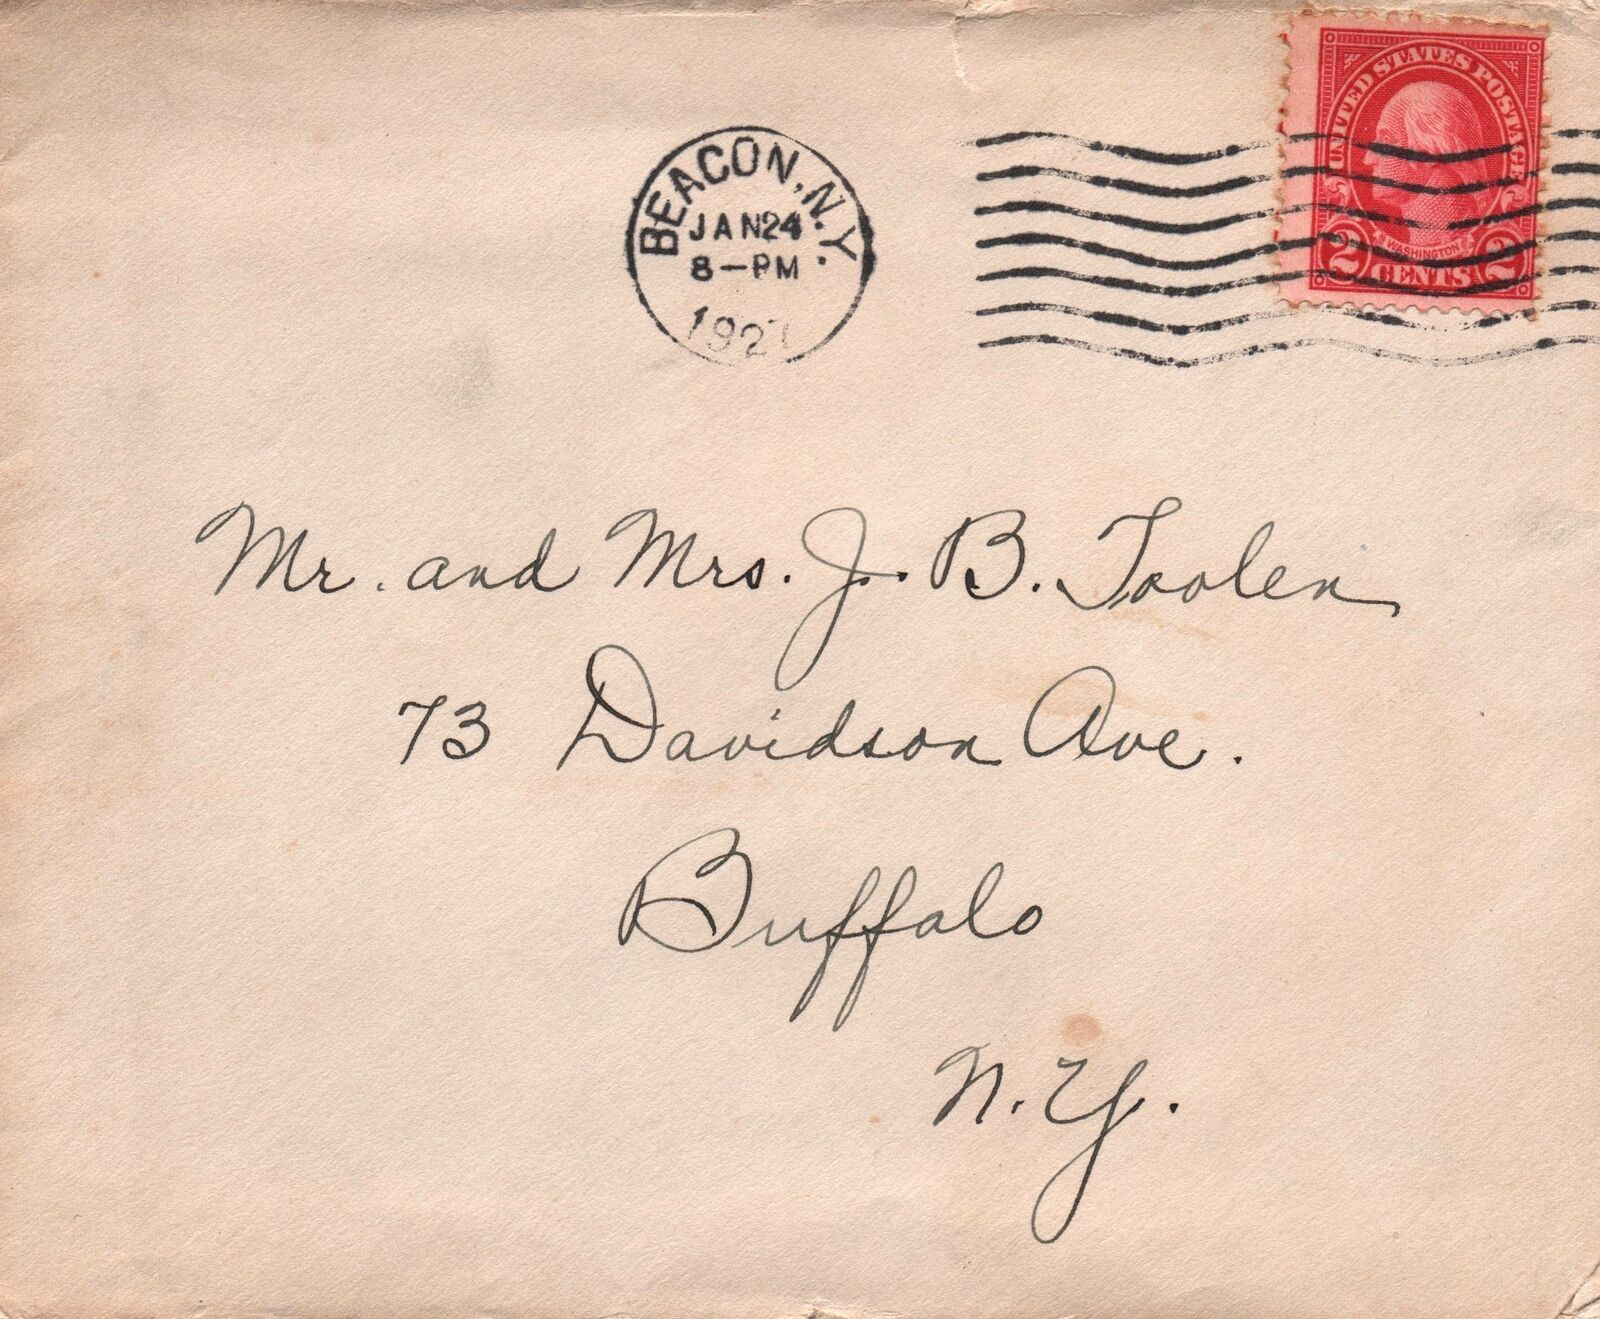 UNITED STATES POSTAGE
WASHINGTON
2 CENTS 2
BEACON, N.Y.
JAN 24
8-PM
1927
Mr. and Mrs. J. B. Toolen
73 Davidson Ave.
Buffalo
N.Y.